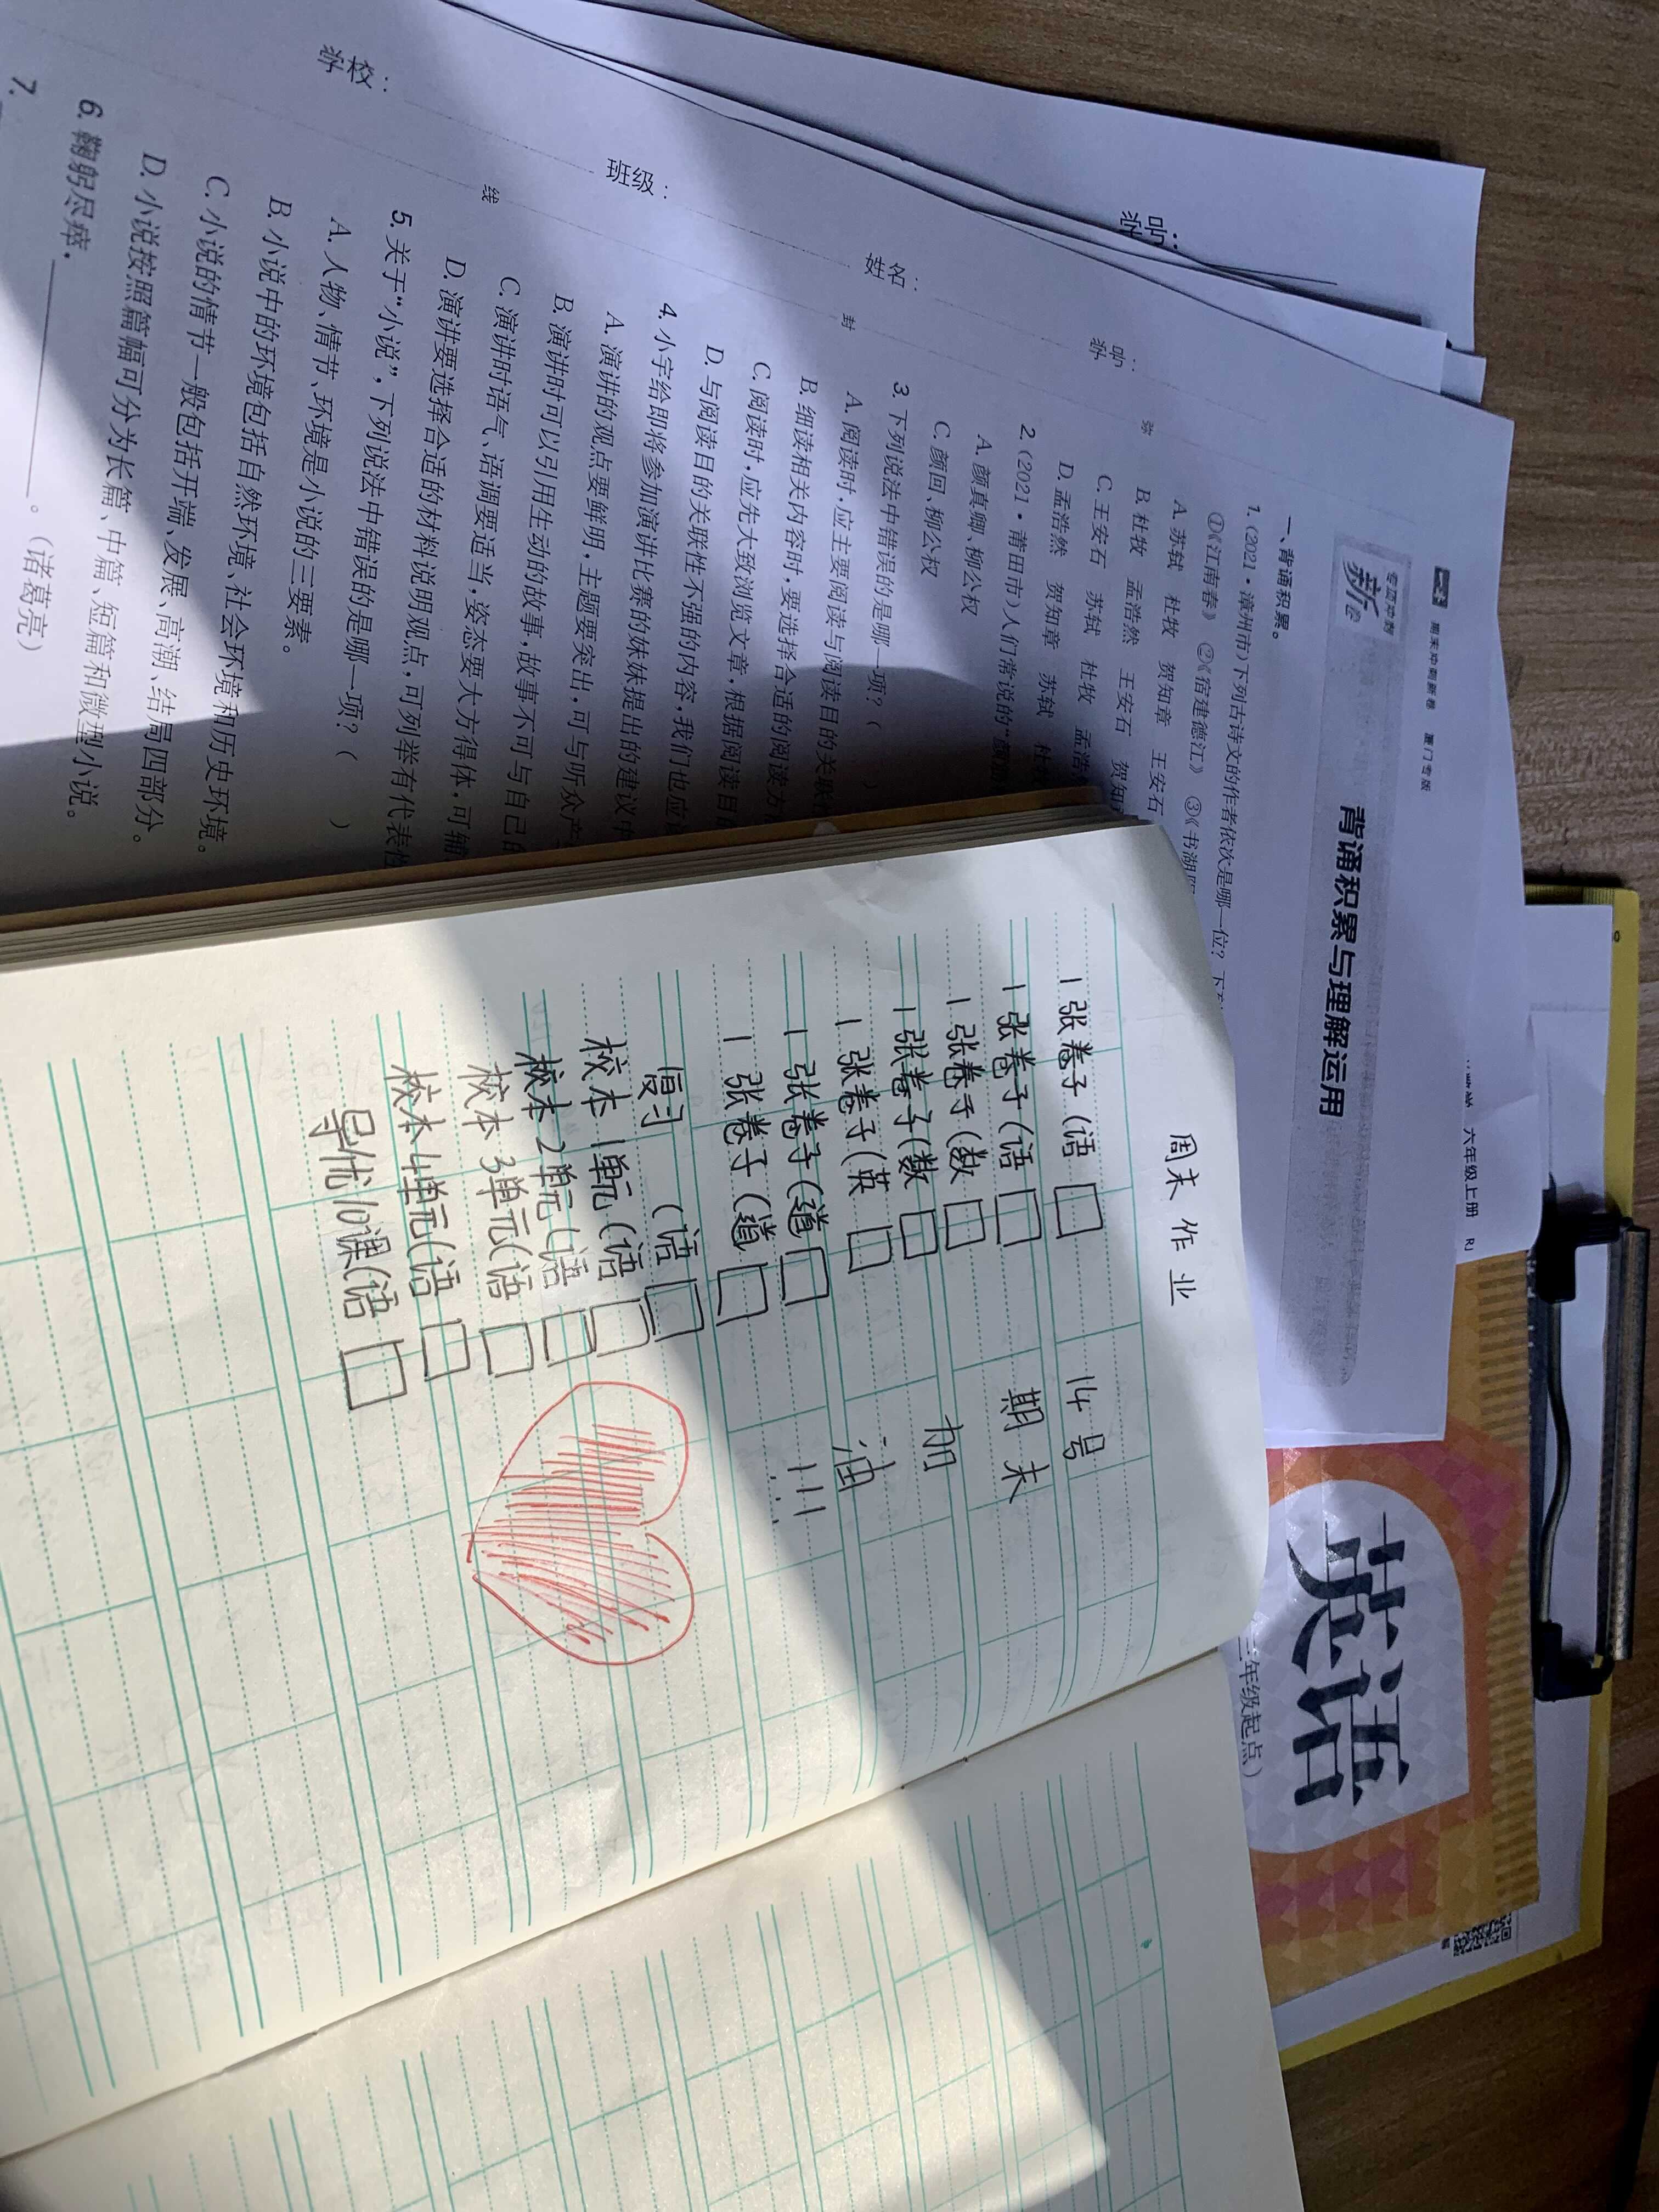 学号：
学校：
班级：
姓名：
学号：
弥
封
线
周末冲刺新卷 厦门专版
六年级上册 RJ
专项冲刺
新
背诵积累与理解运用
一、背诵积累。
1.(2021·漳州市)下列古诗文的作者依次是哪一位？
①《江南春》 ②《宿建德江》 ③《书湖阴
A.苏轼 杜牧 贺知章 王安石
B.杜牧 孟浩然 王安石 贺知
C.王安石 苏轼 杜牧 孟浩
D.孟浩然 贺知章 苏轼 杜
2.(2021·莆田市)人们常说的“颜筋
A.颜真卿、柳公权
C.颜回、柳公权
3.下列说法中错误的是哪一项？（ ）
A.阅读时，应主要阅读与阅读目的关联
B.细读相关内容时，要选择合适的阅读方
C.阅读时，应先大致浏览文章，根据阅读目
D.与阅读目的关联性不强的内容，我们也应
4.小宇给即将参加演讲比赛的妹妹提出的建议中
A.演讲的观点要鲜明，主题要突出，可与听众产
B.演讲时可以引用生动的故事，故事不可与自己的
C.演讲时语气、语调要适当，姿态要大方得体，可辅
D.演讲要选择合适的材料说明观点，可列举有代表性
5.关于“小说”，下列说法中错误的是哪一项？（ ）
A.人物、情节、环境是小说的三要素。
B.小说中的环境包括自然环境、社会环境和历史环境。
C.小说的情节一般包括开端、发展、高潮、结局四部分。
D.小说按照篇幅可分为长篇、中篇、短篇和微型小说。
6.鞠躬尽瘁，________。（诸葛亮）
7.
周末作业
1张卷子（语
1张卷子（语
1张卷子（数
1张卷子（数
1张卷子（英
1张卷子（道
1张卷子（道
复习 （语
校本1单元（语
校本2单元（语
校本3单元（语
校本4单元（语
导优10课（语
14号
期末
加
油
!!!
英语
三年级起点）